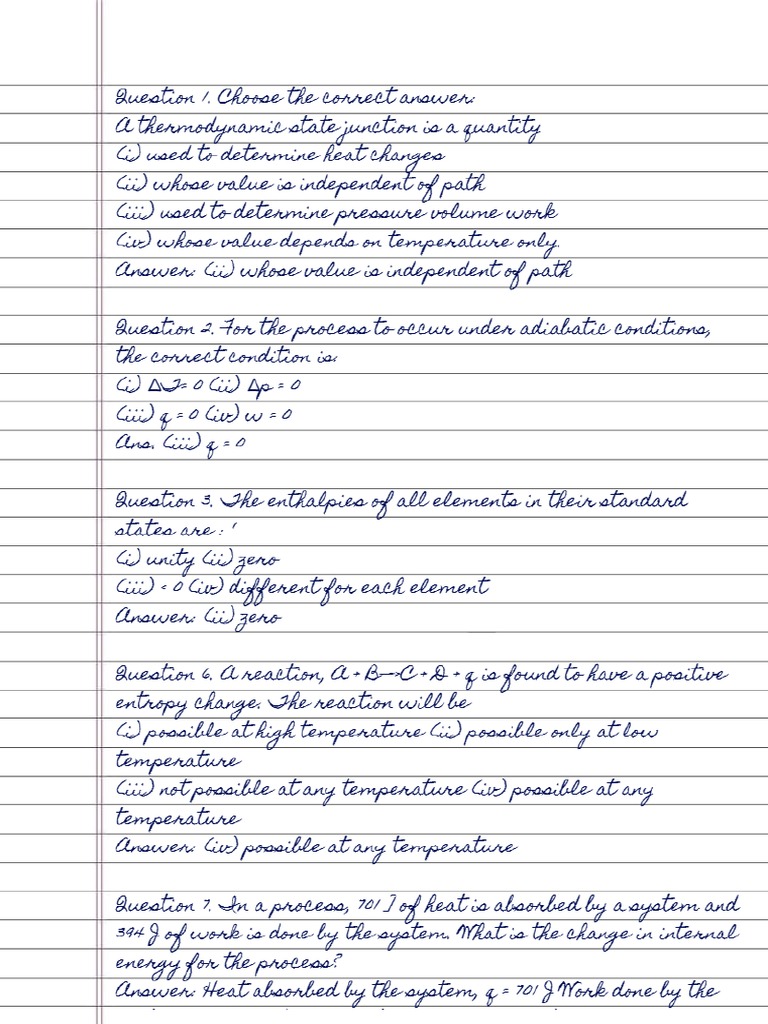 Question 1. Choose the correct answer:
A thermodynamic state junction is a quantity
(i) used to determine heat changes
(ii) whose value is independent of path
(iii) used to determine pressure volume work
(iv) whose value depends on temperature only.
Answer: (ii) whose value is independent of path
Question 2. For the process to occur under adiabatic conditions,
the correct condition is:
(i) ΔT= 0 (ii) Δp = 0
(iii) q = 0 (iv) w = 0
Ans. (iii) q = 0
Question 3. The enthalpies of all elements in their standard
states are : '
(i) unity (ii) zero
(iii) < 0 (iv) different for each element
Answer: (ii) zero
Question 6. A reaction, A + B—>C + D + q is found to have a positive
entropy change. The reaction will be
(i) possible at high temperature (ii) possible only at low
temperature
(iii) not possible at any temperature (iv) possible at any
temperature
Answer: (iv) possible at any temperature
Question 7. In a process, 701 ] of heat is absorbed by a system and
394 J of work is done by the system. What is the change in internal
energy for the process?
Answer: Heat absorbed by the system, q = 701 J Work done by the